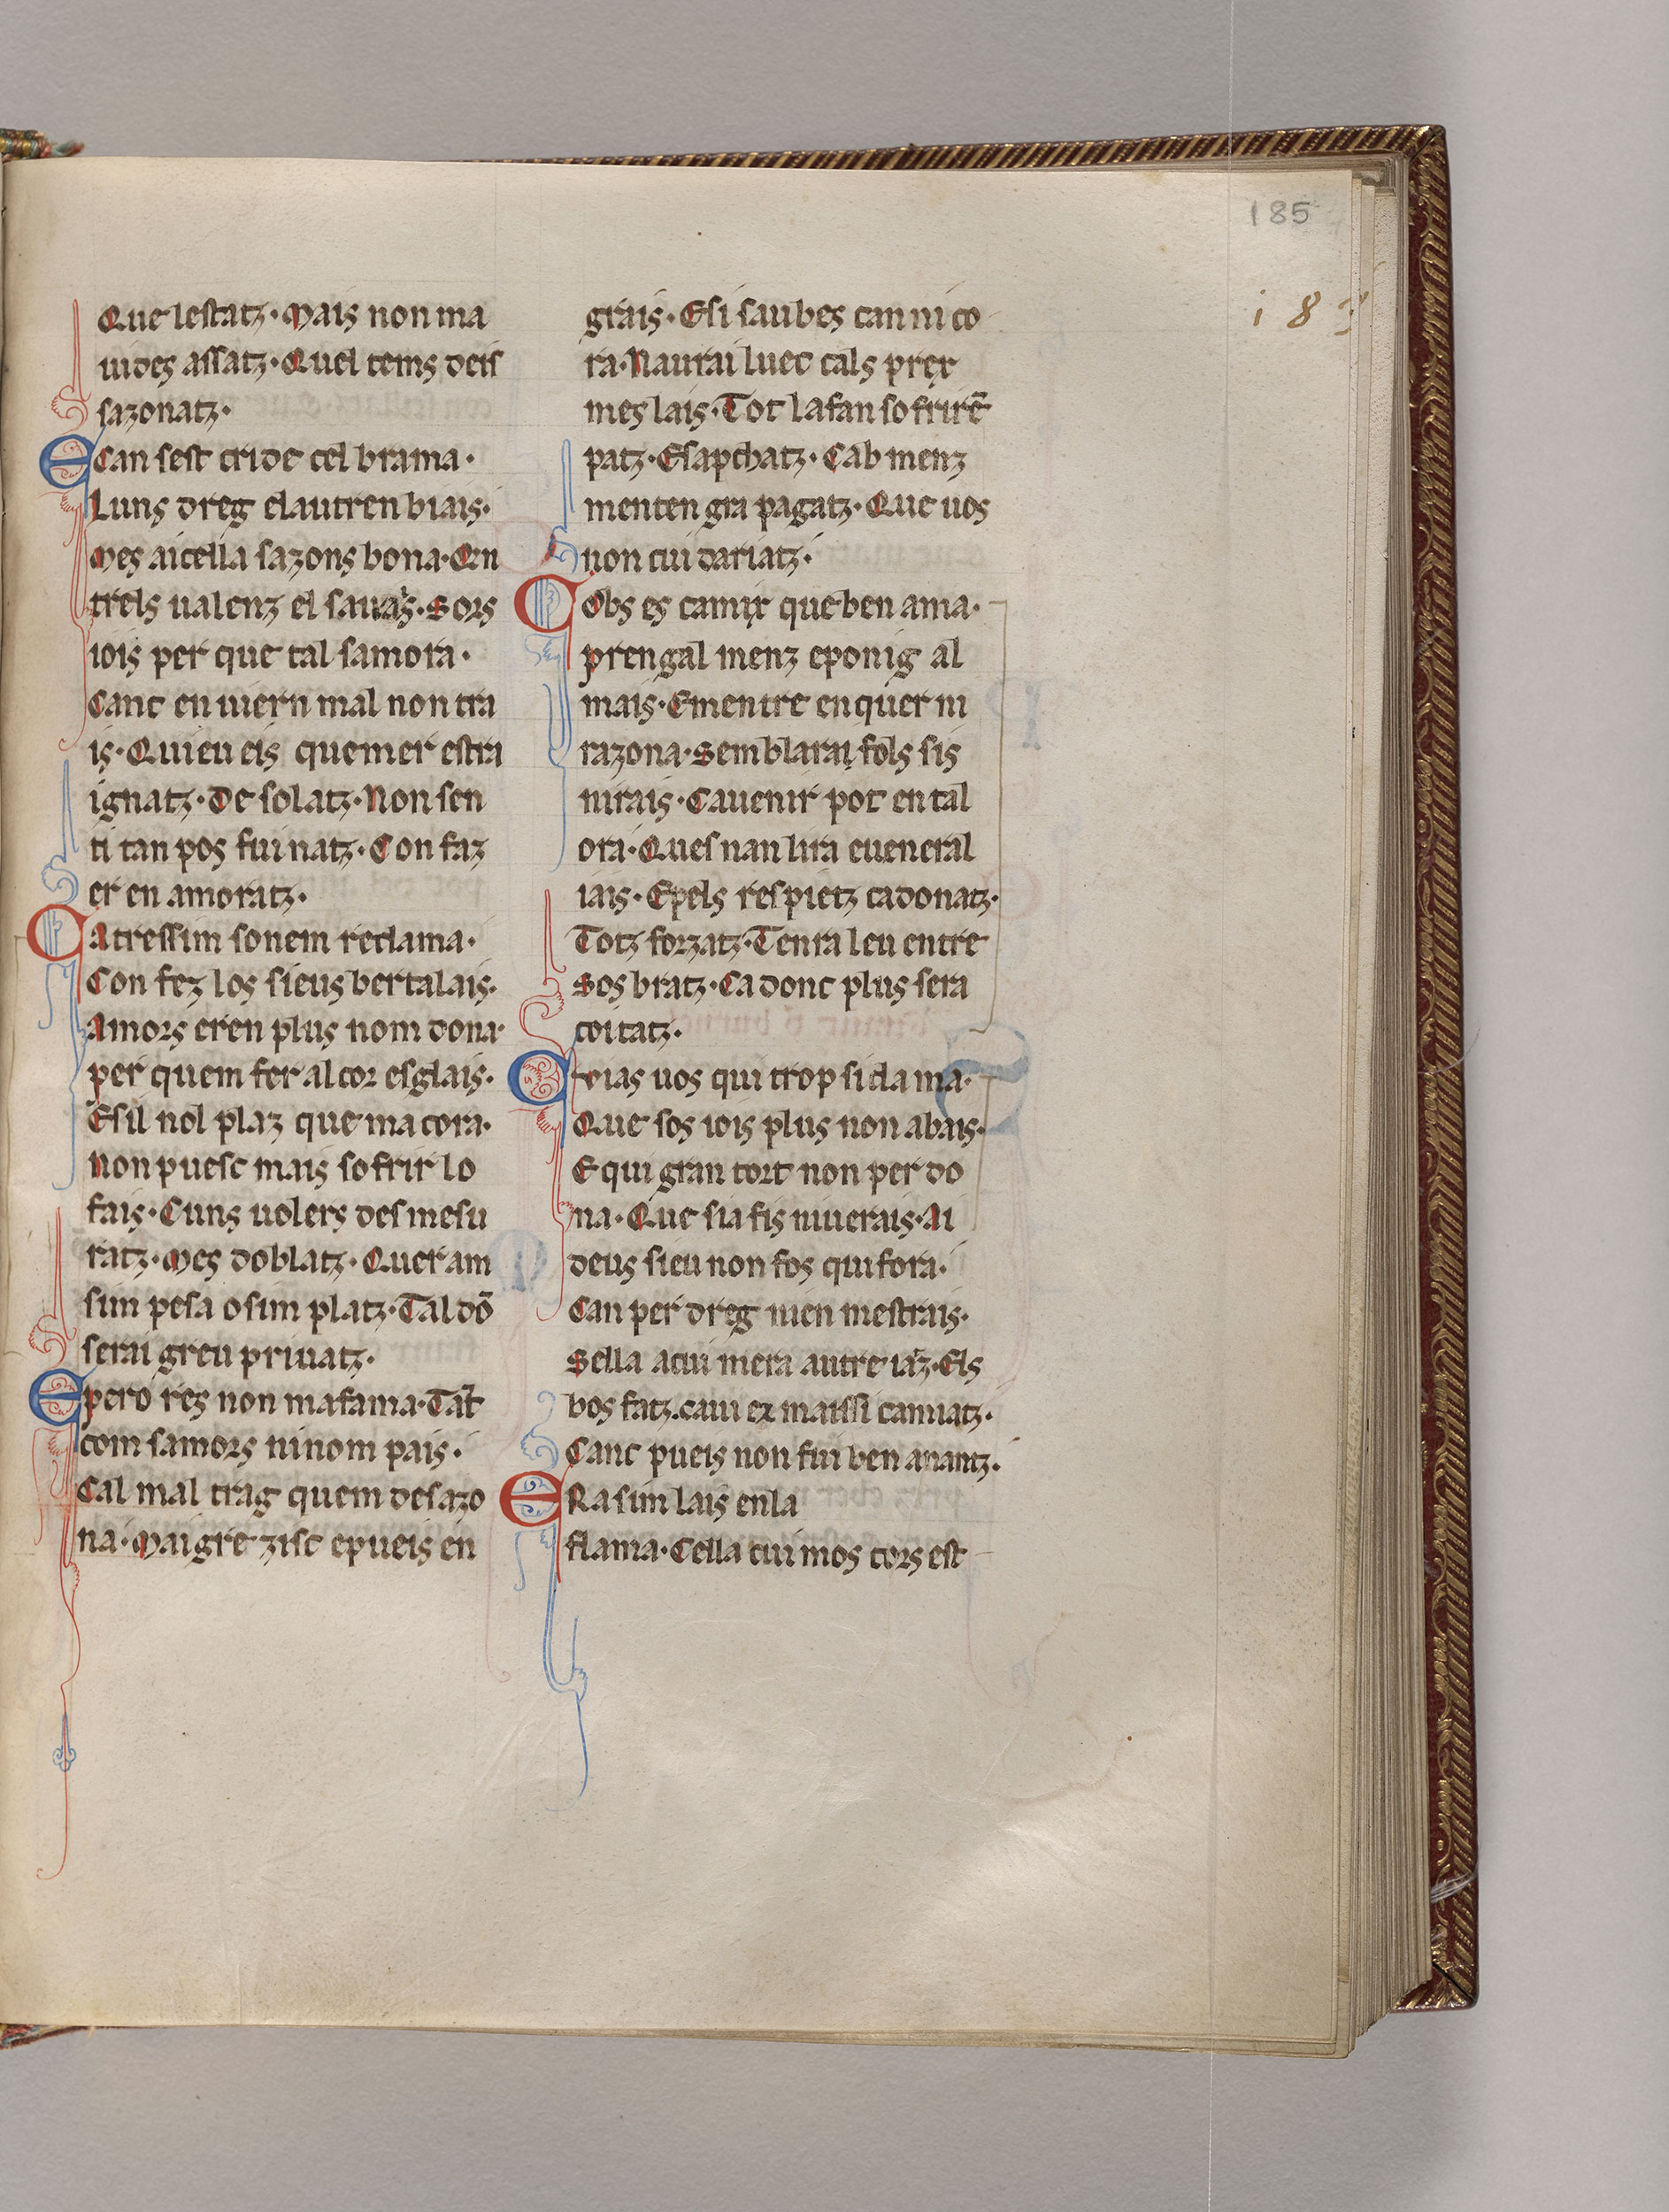 185
i 8 3
Que lestatz· Mais non ma
uides assatz· Quel tems deis
sazonatz·
E Can sest cride cel brama·
Luns dreg elautren biais·
Mes aicella sazons bona· En
trels ualenz el sauais· Sors
iois per que tal samora·
Canc en iuern mal non tra
is· Quieu eis quemer estra
ignatz· De solatz· Non sen
ti tan pos fui natz· Con faz
er en amoratz·
C Atressim sonem reclama·
Con fez los sieus bertalais·
Amors eren plus nom dona·
per quem fer al cor esglais·
Esil nol plaz que ma cora·
Non puesc mais sofrir lo
fais· Cuns uolers desmesu
ratz· Mes doblatz· Queram
sim pesa osim platz· Tal dō
serai greu priuatz·
E pero res non mafama· Tāt
com samors ninom pais·
Cal mal trag quem desazo
na· Maigre zisc epueis en
grais· Esi saubes can ni co
ra· Naurai luec cals prer
mes lais· Tot lafan sofrirē
patz· Esapchatz· Cab menz
menten gra pagatz· Que uos
non cui dariatz·
C Obs es camir que ben ama·
prengal menz eponig al
mais· Ementre enquer ni
razona· Semblarai fols sis
nirais· Cauenir pot en tal
ora· Ques nan lira eueneral
iais· Epels respietz cadonatz·
Totz forzatz· Tenra leu entre
Sos bratz· Cadonc plus sera
coitatz·
C reias uos qui trop si clama·
Que sos iois plus non abais·
E qui gran tort non perdo
na· Que sia fis niuerais· Ai
deus sieu non fos qui fora·
Can per dreg nien mestrais·
Sella acui mera autreiaz· Els
bos fatz. caui ez maissi camiatz·
Canc pueis non fui ben anantz·
E Ra sim lais enla
flama· Cella cui mos cors est